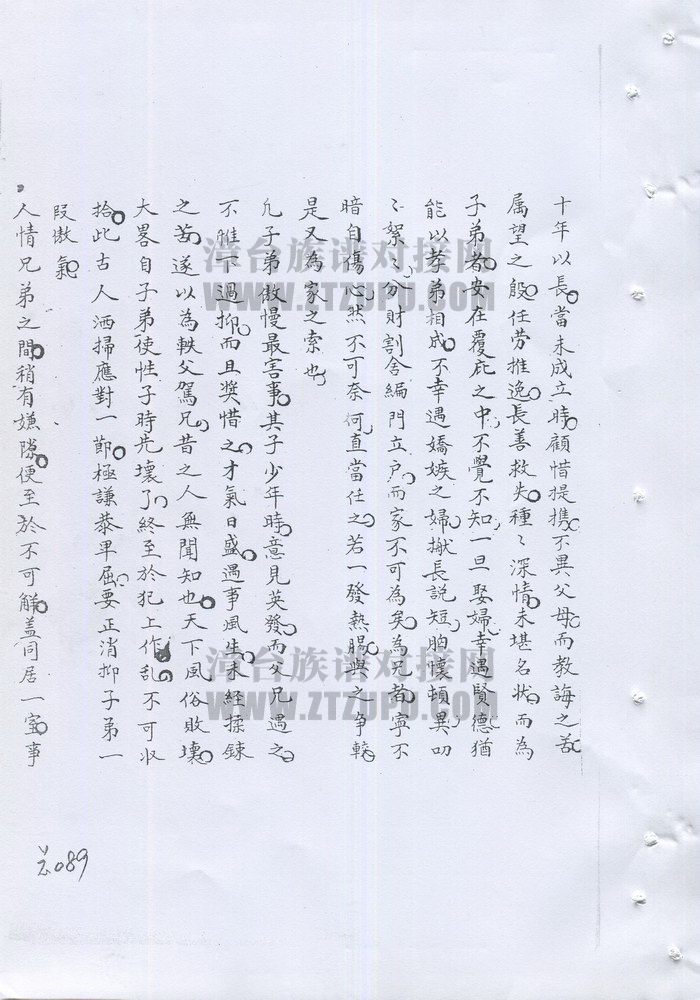 十年以長。當未成立時顧惜提携不異父母而教誨之苦
属望之殷。任劳推逸。長善救失。種〻深情未堪名状。而為
子弟者。安在覆庇之中。不覺不知。一旦娶婦。幸遇賢德。猶
能以孝弟相成。不幸遇嬌嫉之婦。揪長説短。胸懷頓異。叨
〻絮〻。分財割舍編門立户。而家不可為矣。為兄者。寧不
暗自傷心。然不可奈何。直當任之。若一發熱腸與之争較。
是又為家之索也。
凢子弟傲慢最害事。其子少年時。意見英發。而父兄遇之。
不惟不過抑。而且奬惜之。才氣日盛。遇事風生。未經揉鍊
之苦。遂以為軼父駕兄。昔之人無聞知也。天下風俗敗壞。
大畧自子弟使性子時先壞了。終至於犯上作乱。不可収
拾。此古人洒掃應對一節。極謙恭卑屈。要正消抑子弟一
段傲氣
人情兄弟之間。稍有嫌隙。便至於不可解。盖同居一室。事
总089
漳台族谱对接网
WWW.ZTZUPU.COM
漳台族谱对接网
WWW.ZTZUPU.COM